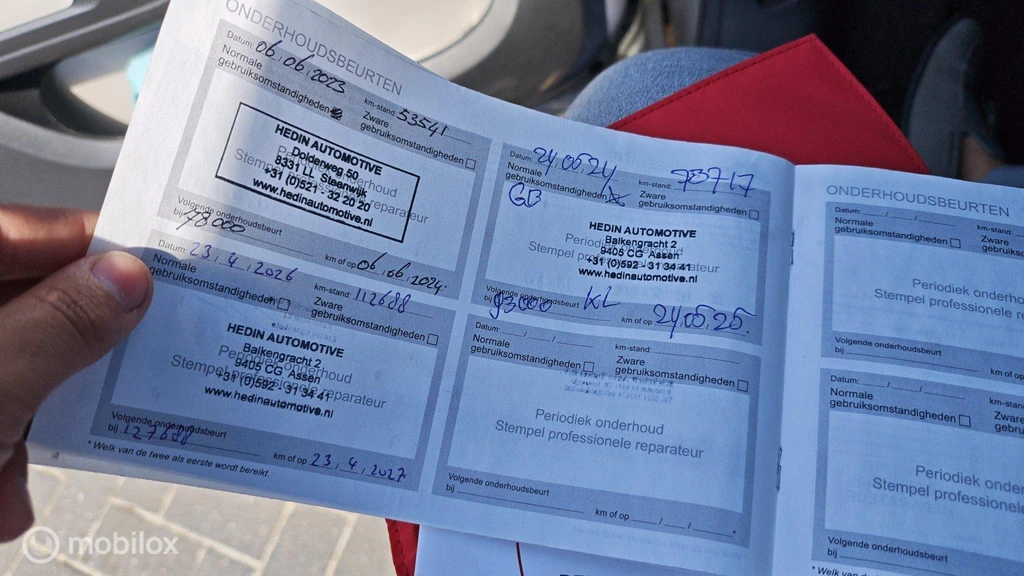 ONDERHOUDSBEURTEN
Datum: 06.06.2023 km-stand: 53541
Normale gebruiksomstandigheden
Zware gebruiksomstandigheden
HEDIN AUTOMOTIVE
Dolderweg 50
8331 LL Steenwijk
+31 (0)521 - 32 20 20
www.hedinautomotive.nl
Periodiek onderhoud
Stempel professionele reparateur
Volgende onderhoudsbeurt
bij 78000 km of op 06.06.2024
Datum: 24/05/24 km-stand: 78717
Normale gebruiksomstandigheden
Zware gebruiksomstandigheden
GB
HEDIN AUTOMOTIVE
Balkengracht 2
9405 CG Assen
+31 (0)592 - 31 34 41
www.hedinautomotive.nl
Periodiek onderhoud
Stempel professionele reparateur
Volgende onderhoudsbeurt
bij 93000 KL km of op 24/05/25.
Datum: 23.4.2026 km-stand: 112688
Normale gebruiksomstandigheden
Zware gebruiksomstandigheden
HEDIN AUTOMOTIVE
Balkengracht 2
9405 CG Assen
+31 (0)592 - 31 34 41
www.hedinautomotive.nl
Periodiek onderhoud
Stempel professionele reparateur
Volgende onderhoudsbeurt
bij 127688 km of op 23.4.2027
* Welk van de twee als eerste wordt bereikt.
4
Datum: __ / __ / __ km-stand:
Normale gebruiksomstandigheden
Zware gebruiksomstandigheden
Periodiek onderhoud
Stempel professionele reparateur
Volgende onderhoudsbeurt
bij km of op __ / __ / __ *
ONDERHOUDSBEURTEN
Datum: __ / __ / __ km-stand
Normale gebruiksomstandigheden
Zware gebruiksom
Periodiek onderho
Stempel professione
Volgende onderhoudsbeurt
bij km of
Datum: __ / __ / __ km-s
Normale gebruiksomstandigheden
Zwar gebru
Periodiek onder
Stempel professio
Volgende onderhoudsbeurt
bij
* Welk van
mobilox